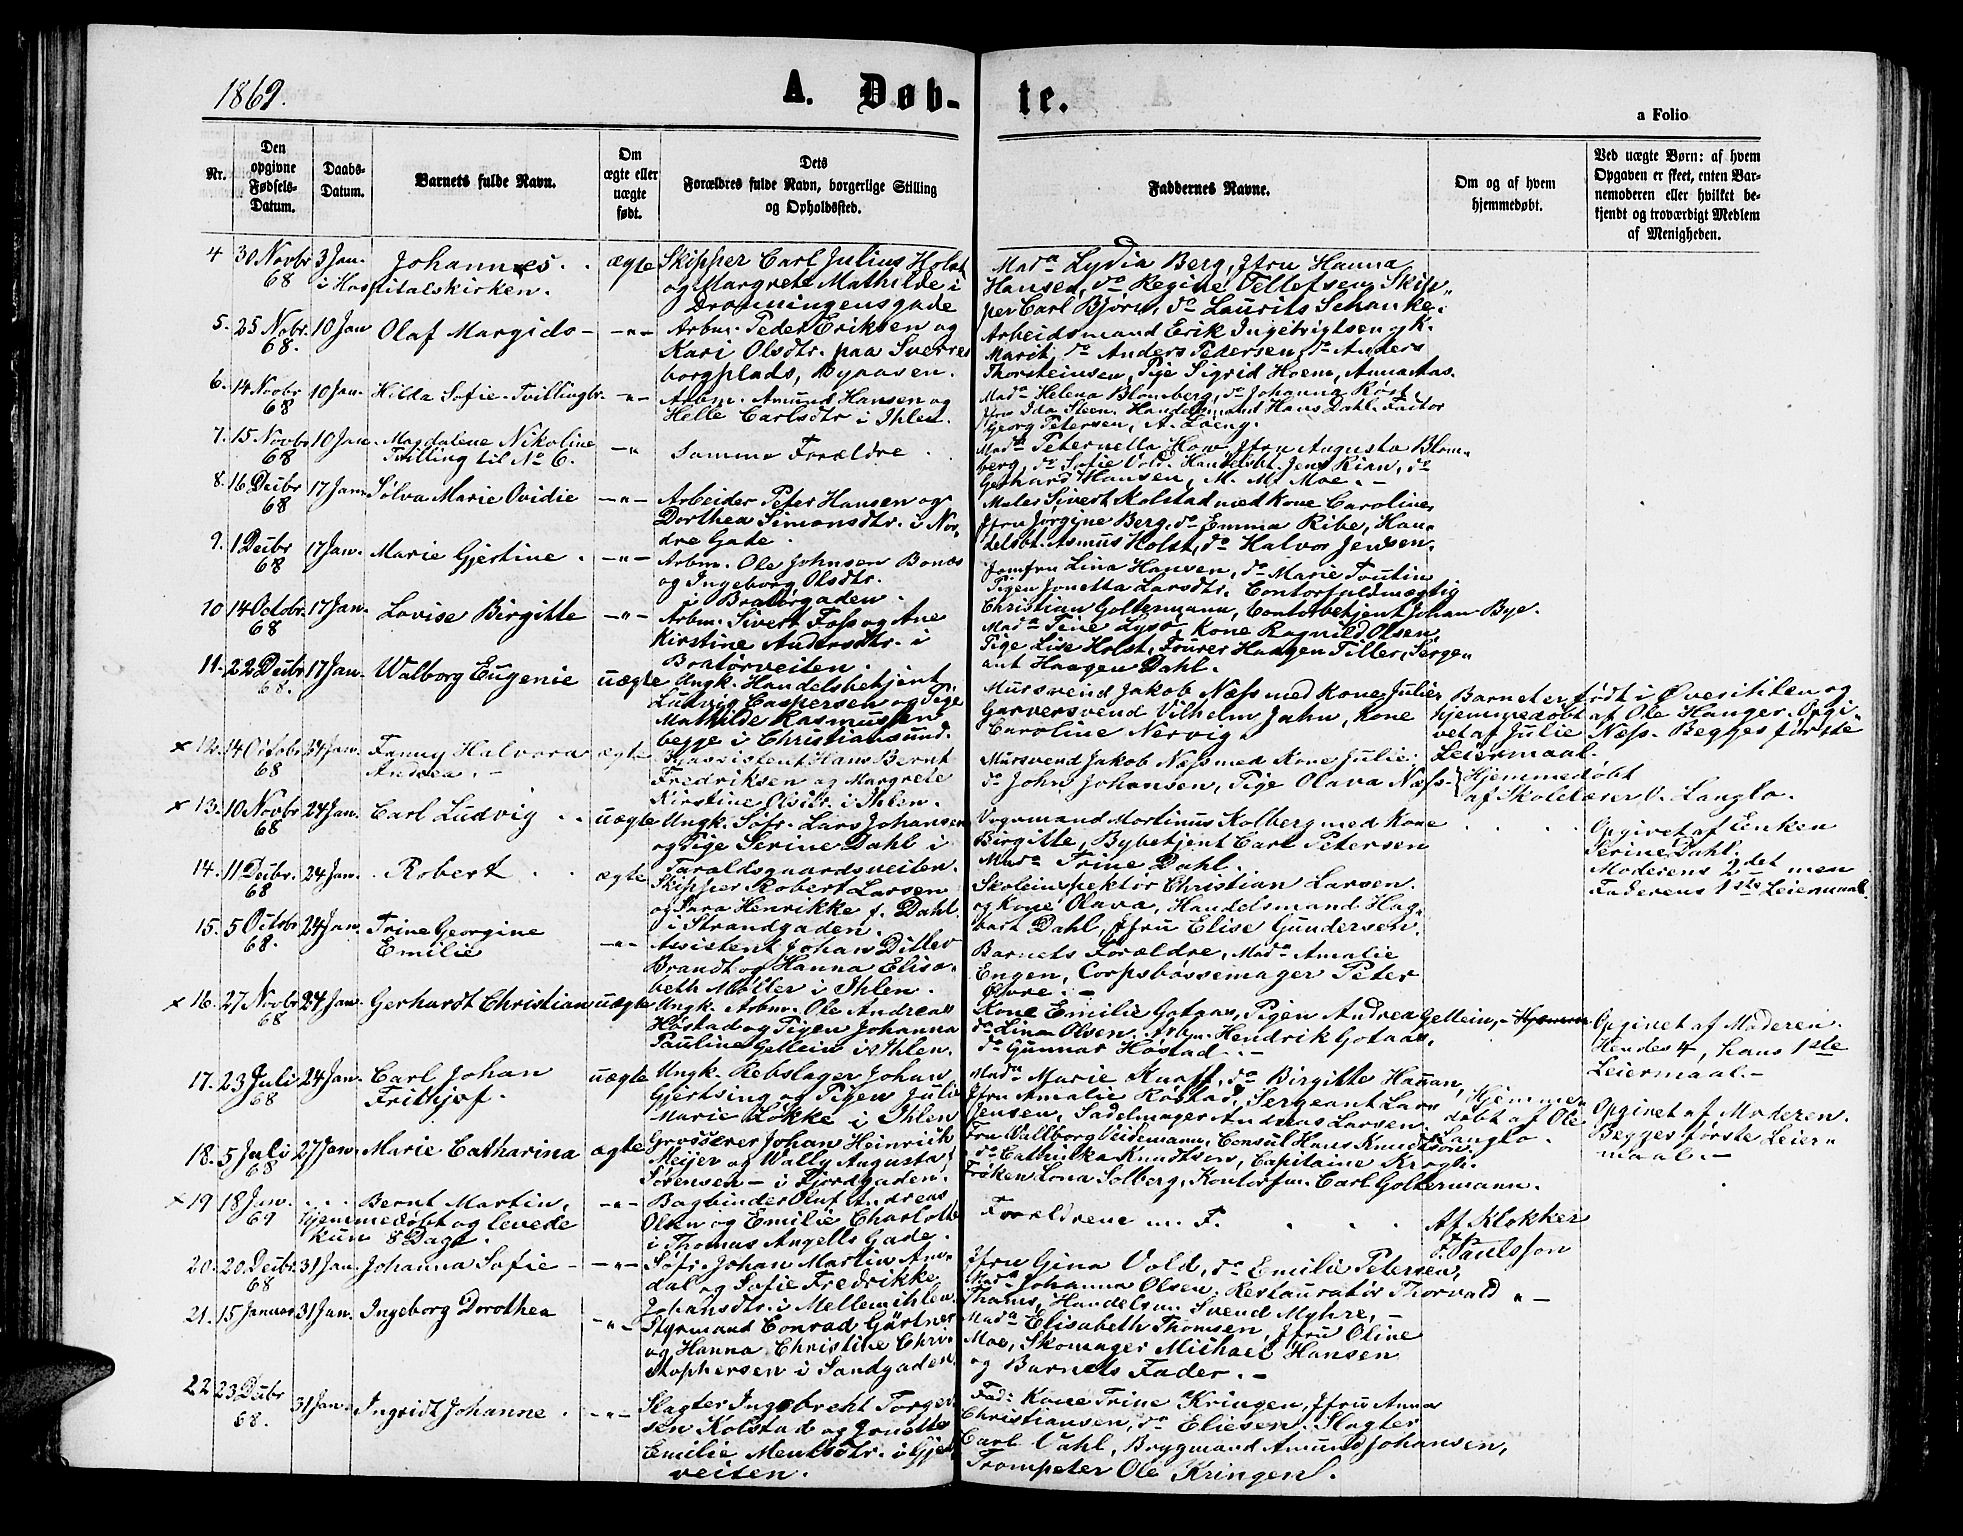 1869.
A. Døb-
te.
a Folio
Nr.
Den opgivne Fødsels-Datum.
Daabs-Datum.
Barnets fulde Navn.
Om ægte eller uægte født.
Dets Forældres fulde Navn, borgerlige Stilling og Opholdssted.
Faddernes Navne.
Om og af hvem hjemmedøbt.
Ved uægte Børn: af hvem Opgaven er skeet, enten Barnemoderen eller hvilket bekjendt og troværdigt Medlem af Menigheden.
4 30 Novbr 68 3 Jan. i Hospitalskirken. Johannes. ægte
Skipper Carl Julius Holst
og Margrete Mathilde i
Dronningensgade
Mada Lydia Berg, Jfru Hanna
Hansen, do Regine Tellefsen, Skip-
per Carl Bjørn, do Laurits Schanke.
5. 25 Nobr. 68. 10 Jan Olaf Margido - -"-
Arbm. Peder Eriksen og
Kari Olsdtr. paa Sverres
borgplads, Byaasen.
Arbeidsmand Erik Ingebrigtsen og K.
Marit, do Anders Petersen, do Anders
Thorsteinsen, Pige Sigrid Hoem, Anna Aas.
6. 14 Novbr 68 10 Jan. Hilda Sofie. Tvillingbr. -"-
Arbm. Amund Hansen og
Helle Carlsdtr i Ihlen.
Mada Helena Blomberg, do Johanna Røst,
Jfru Ida Steen. Handelsmand Hans Dahl. Factor
Georg Petersen, A. Loeng.
7. 15 Novbr 68 10 Jan. Magdalene Nikoline Tvilling til No 6. -"-
Samme Forældre
Mada Peternella How, Jfru Augusta Blom-
berg, do Sofie Vold. Handelsbt. Jens Rian, do
Gerhard Hansen, M. M. Moe. -
8. 16 Decbr 68 17 Jan. Sølva Marie Ovidie -"-
Arbeider Peter Hansen og
Dorthea Simonsdtr. i Nor-
dre Gate.
Maler Sivert Kolstad med Kone Caroline,
Jfru Jorgine Berg, do Emma Ribe, Han-
delsbt. Asmus Holst, do Halvor Jensen.
9. 1 Decbr 68 17 Jan. Marie Gjertine. -"-
Arbm. Ole Johnsen Bonæs
og Ingeborg Olsdtr.
i Bratørgaden.
Jomfru Lina Hansen, do Marie Toutin
Pigen Jonetta Larsdtr. Contorfuldmægtig
Christian Goltermann, Contorbetjent Johan Bye.
10 14 Octobr. 68 17 Jan. Lovise Birgitte -"-
Arbm. Sivert Foss og Ane
Kirstine Andersdtr. i
Bratørveiten.
Mada Trine Lysø. Kone Ragnild Olsen,
Pige Lise Holst, Fourer Haagen Tiller, Serge-
ant Haagen Dahl.
11. 22 Decbr. 68. 17 Jan. Walborg Eugenie uægte
Ungk. Handelsbetjent
Ludvig Caspersen og Pige
Mathilde Rasmussen
begge i Christiansund.
Mursvend Jakob Næss med Kone Julie,
Garversvend Vilhelm Jahn, Kone
Caroline Nervig.
Barnet er født i Øvesitilen og
hjemmedøbt af Ole Hanger. Opgi-
vet af Julie Næss. Begges første
Leiermaal.
x 12. 14 Octobr. 68 24 Jan. Fanny Halvora Andrea. - ægte
Hans Bernt
Fredriksen og Margrete
Kirstine Olsdtr. i Ihlen.
Mursvend Jakob Næss med Kone Julie.
do John Johansen, Pige Olava Næss.
Hjemmedøbt
af Skolelærer O. Langlo.
x 13. 10 Novbr 68 24 Jan. Carl Ludvig.. uægte
Ungk. Søfr. Lars Johansen
og Pige Serine Dahl i
Taraldsgaardsveiten.
Vognmand Mortinus Kolberg med Kone
Birgitte, Bybetjent Carl Petersen
Mada Trine Dahl.
Opgivet af Enken
Serine Dahl.
Moderens 2det men
Faderens 1ste Leiermaal.
14. 11 Decbr. 68 24 Jan. Robert.. ægte
Skipper Robert Larsen
og Sara Henrikke f. Dahl
i Strandgaden.
Skoleinspektør Christian Larsen.
og Kone Olava, Handelsmand Hag-
bart Dahl, Jfru Elise Gundersen.
15. 5 Octobr 68. 24 Jan. Trine Georgine Emilie -"-
Assistent Johan Ditlev
Brandt og Hanna Elisa-
beth Møller i Ihlen.
Barnets Forældre, Mada Amalie
Engen, Corpsbøssemager Peter
Øwre. -
x 16. 27 Novbr 68 24 Jan. Gerhardt Christian uægte
Ungk. Arbm. Ole Andreas
Høstad og Pigen Johanna
Pauline Gellein i Ihlen.
Kone Emilie Gotaas, Pigen Andrea Gellein,
do Lina Olsen, Arbm. Hendrik Gotaas,
do Gunnar Høstad. -
Opgivet af Moderen.
Hendes 4, hans 1ste
Leiermaal. -
17. 23 Juli 68 24 Jan. Carl Johan Frithjof. uægte
Ungk. Rebslager Johan
Gjertsing og Pigen Julie
Marie Løkke i Ihlen
Mada Marie Kurff, do Birgitte Hauan,
Jfru Amalie Røstad, Sergeant Lars
Jensen, Sadelmager Andreas Larsen.
Hjemme-
døbt af Ole
Langlo.
Opgivet af Moderen.
Begges første Leier-
maal. -
18. 5 Juli 68 27 Jan. Marie Catharina ægte
Grosserer Johan Heinrich
Meijer og Wally Augusta
Sørensen - i Fjordgaden.
Fru Wallborg Veidemann, Consul Hans Knudtson.
do Cathinka Knudtson, Capitaine Krogh.
Frøken Lona Solberg, Kontorfm. Carl Goltermann.
x 19 18 Jan. 69 ... Bernt Martin, hjemmedøbt og levede kun 8 Dage. -"-
Bogbinder Oluf Andreas
Olsen og Emilie Charlotte
i Thomas Angells Gade.
Forældrene m. F.
Af Klokker
F. Paulsson
20. 20 Decbr 68 31 Jan. Johanna Sofie - -"-
Søfr. Johan Martin An-
dal og Sofie Fredrikke
Johansdtr. i Mellemihlen.
Jfru Gina Vold, do Emilie Petersen,
Mada Johanna Olsen, Restauratør Thorvald
Thams, Handelsm. Svend Myhre, -
21. 15 Januar 31 Jan. Ingeborg Dorothea -"-
Styrmand Conrad Gärtner
og Hanna Christine Chri-
stophersen i Sandgaden.
Mada Elisabeth Thomsen, Jfru Oline
Moe, Skomager Michael Hansen
og Barnets Fader. -
22 23 Decbr 68. 31 Jan. Ingridt Johanne. -"-
Slagter Ingebrecht Torger-
sen Kolstad og Jonette
Emilie Mentsdtr. i Gjet-
veiten.
Fad: Kone Trine Kringen, Jfru Anna
Christiansen, do Eliesen. Slagter
Carl Vahl, Brygmand Amund Johansen,
Trompeter Ole Kringen.